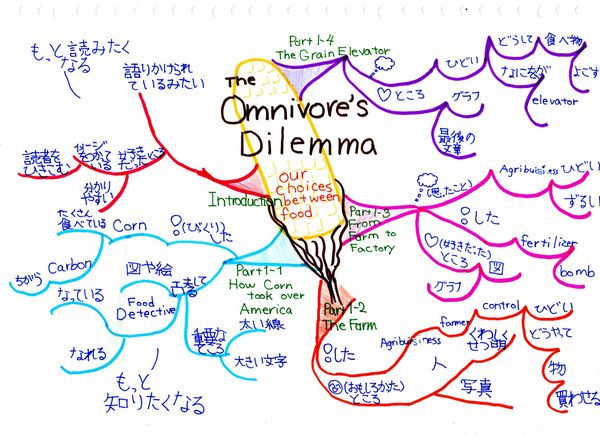 The
Omnivore's
Dilemma
our
choices
between
food
もっと読みたく
なる
語りかけられ
ているみたい
読者を
ひきこむ
イメージ
分かり
やすい
Introduction
Part 1-4
The Grain Elevator
ひどい
どうして
食べ物
なにをが
よごす
elevator
♡ところ
グラフ
最後の
文章
Part 1-3
From
Farm to
Factory
(思ったこと)
Agribuisiness
ひどい
ずるい
した
♡(好きだった)
ところ
図
グラフ
fertilizer
bomb
Part 1-1
How Corn
took over
America
(びっくり)した
Corn
たくさん
食べている
Carbon
ちがう
なっている
図や絵
工夫してる
Food
Detective
なれる
もっと
知りたくなる
重要な
ところ
太い線
大きい文字
Part 1-2
The Farm
した
Agribuisiness
farmer
control
ひどい
どうやって
物
買わせる
(おもしろかった)
ところ
人
くわしく
せつ明
写真